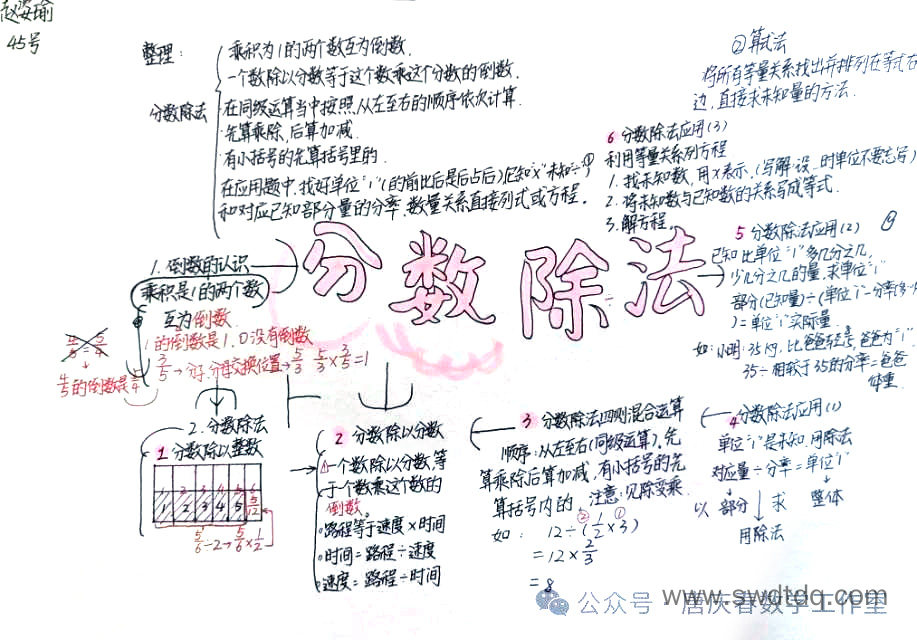 赵姿瑜
45号
整理:
分数除法
乘积为1的两个数互为倒数.
一个数除以分数等于这个数乘这个分数的倒数.
在同级运算当中按照从左至右的顺序依次计算.
先算乘除,后算加减.
有小括号的先算括号里的.
在应用题中,找好单位"1"(的前比后是后占后)已知"×"未知÷
和对应已知部分量的分率,数量关系直接列式或方程.
②算式法
将所有等量关系找出并排列在等式右
边,直接求未知量的方法.
6 分数除法应用(3)
利用等量关系列方程
1. 找未知数,用X表示.(写解:设...时单位不要忘写)
2. 将未知数与已知数的关系写成等式.
3. 解方程.
分数除法
5 分数除法应用(2)
已知比单位"1"多几分之几,
少几分之几的量,求单位"1"
部分(已知量)÷(单位"1"-分率
)=单位"1"实际量.
如:小明:35kg,比爸爸轻,爸爸为"1".
35÷相较于35的分率=爸爸
体重.
1. 倒数的认识
乘积是1的两个数
互为倒数.
1的倒数是1.0没有倒数
3/5→分子、分母交换位置→5/3 5/3×3/5=1
4/5=5/4
4/5的倒数是5/4
2. 分数除法
1 分数除以整数
1 2 3 4 5
5/12
5/6÷2→5/6×1/2
2 分数除以分数
一个数除以分数,等
于一个数乘这个数的
倒数。
路程等于速度×时间
时间=路程÷速度
速度=路程÷时间
3 分数除法四则混合运算
顺序:从左至右(同级运算),先
算乘除后算加减,有小括号的先
算括号内的. 注意:见除变乘.
② ①
如: 12÷(1/2×3)
=12×2/3
=8
4 分数除法应用(1)
单位"1"是未知,用除法
对应量÷分率=单位"1"
以 部分 求 整体
用除法
公众号 唐庆春数学工作室
www.swdtdq.com